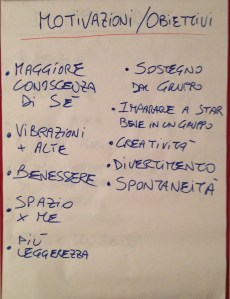 MOTIVAZIONI/OBIETTIVI
• MAGGIORE
CONOSCENZA
DI SÈ
• VIBRAZIONI
+ ALTE
• BENESSERE
• SPAZIO
X ME
• PIÙ
LEGGEREZZA
• SOSTEGNO
DAL GRUPPO
• IMPARARE A STAR
BENE IN UN GRUPPO
• CREATIVITÀ
• DIVERTIMENTO
• SPONTANEITÀ